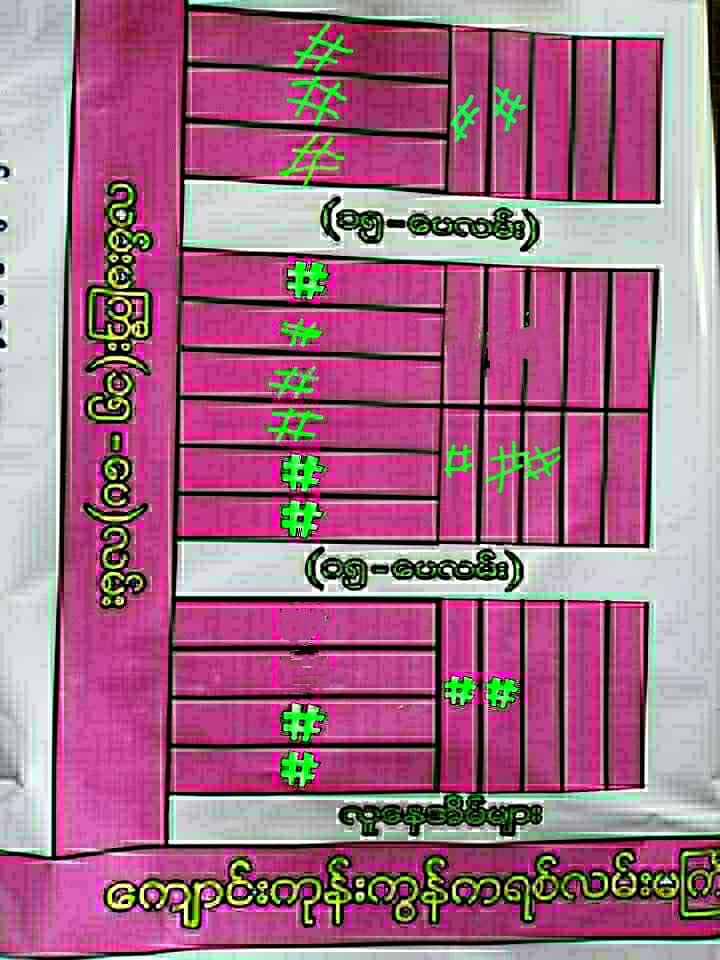 (၁၅-ပေလမ်း)
(၁၅-ပေ)လမ်း
(၁၅-ပေလမ်း)
လူနေအိမ်များ
ကျောင်းကုန်းကွန်ကရစ်လမ်းမကြီ